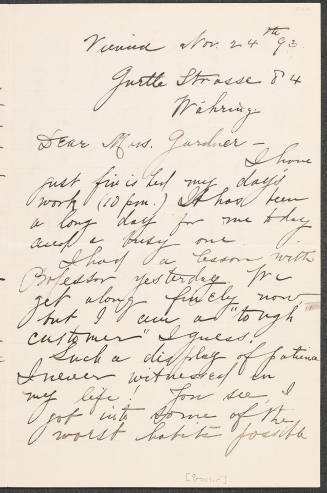 Vienna Nov. 24th 93.
Gurtle Strasse 84
Währing.
Dear Mrs. Gardner -
I have
just finished my day's
work (10 p.m.) It has been
a long day for me today
and a busy one.
I had a lesson with
Professor yesterday. We
get along finely now,
but I am a "tough
customer" I guess.
Such a display of patience
I never witnessed in
my life! You see, I
got into some of the
worst habits possible